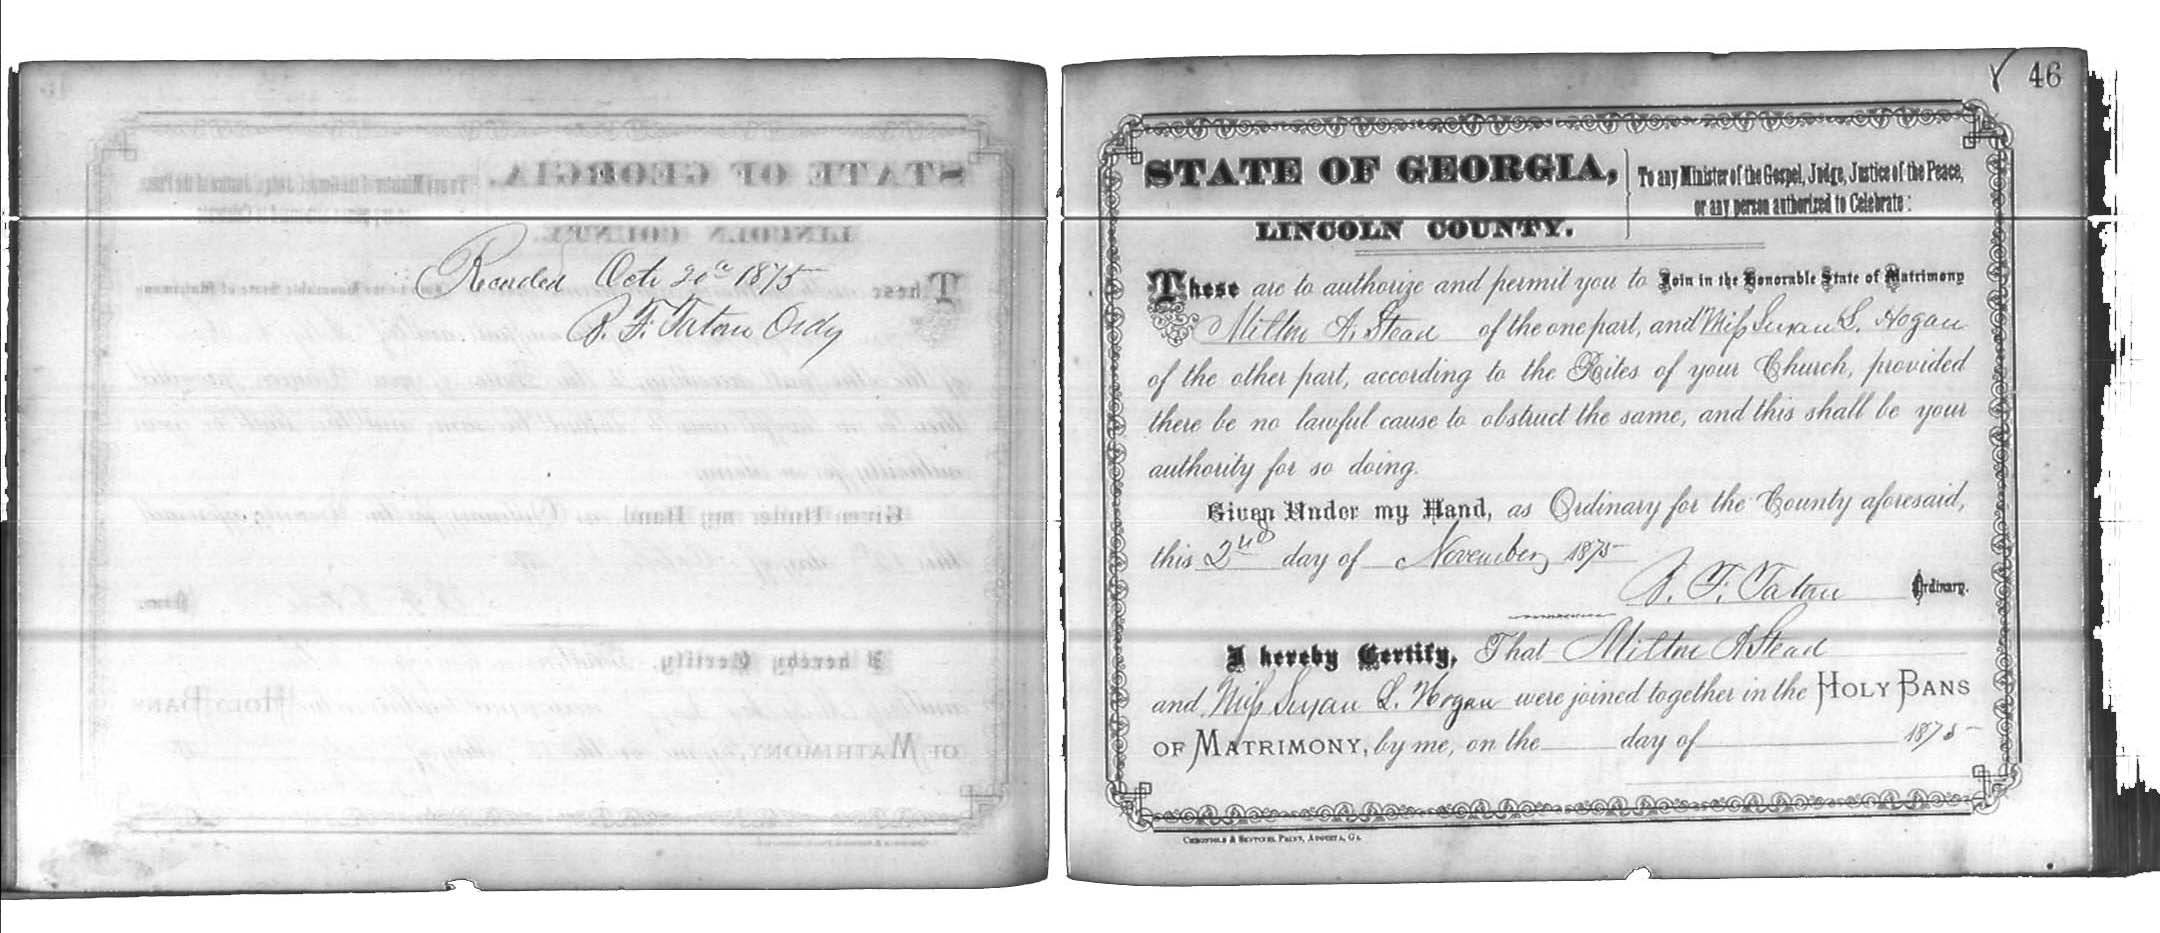 Recorded Oct 20th 1875
B. F. Tatom Ordy
46
STATE OF GEORGIA,
LINCOLN COUNTY.
To any Minister of the Gospel, Judge, Justice of the Peace,
or any person authorized to Celebrate:
These are to authorize and permit you to Join in the Honorable State of Matrimony
Milton A. Stead of the one part, and Miss Susan L. Hogan
of the other part, according to the Rites of your Church, provided
there be no lawful cause to obstruct the same, and this shall be your
authority for so doing.
Given Under my Hand, as Ordinary for the County aforesaid,
this 2nd day of November 1875
B. F. Tatom Ordinary.
I hereby Certify, That Milton A Stead
and Miss Susan L. Hogan were joined together in the HOLY BANS
OF MATRIMONY, by me, on the day of 1875
PRINT, AUGUSTA, GA.